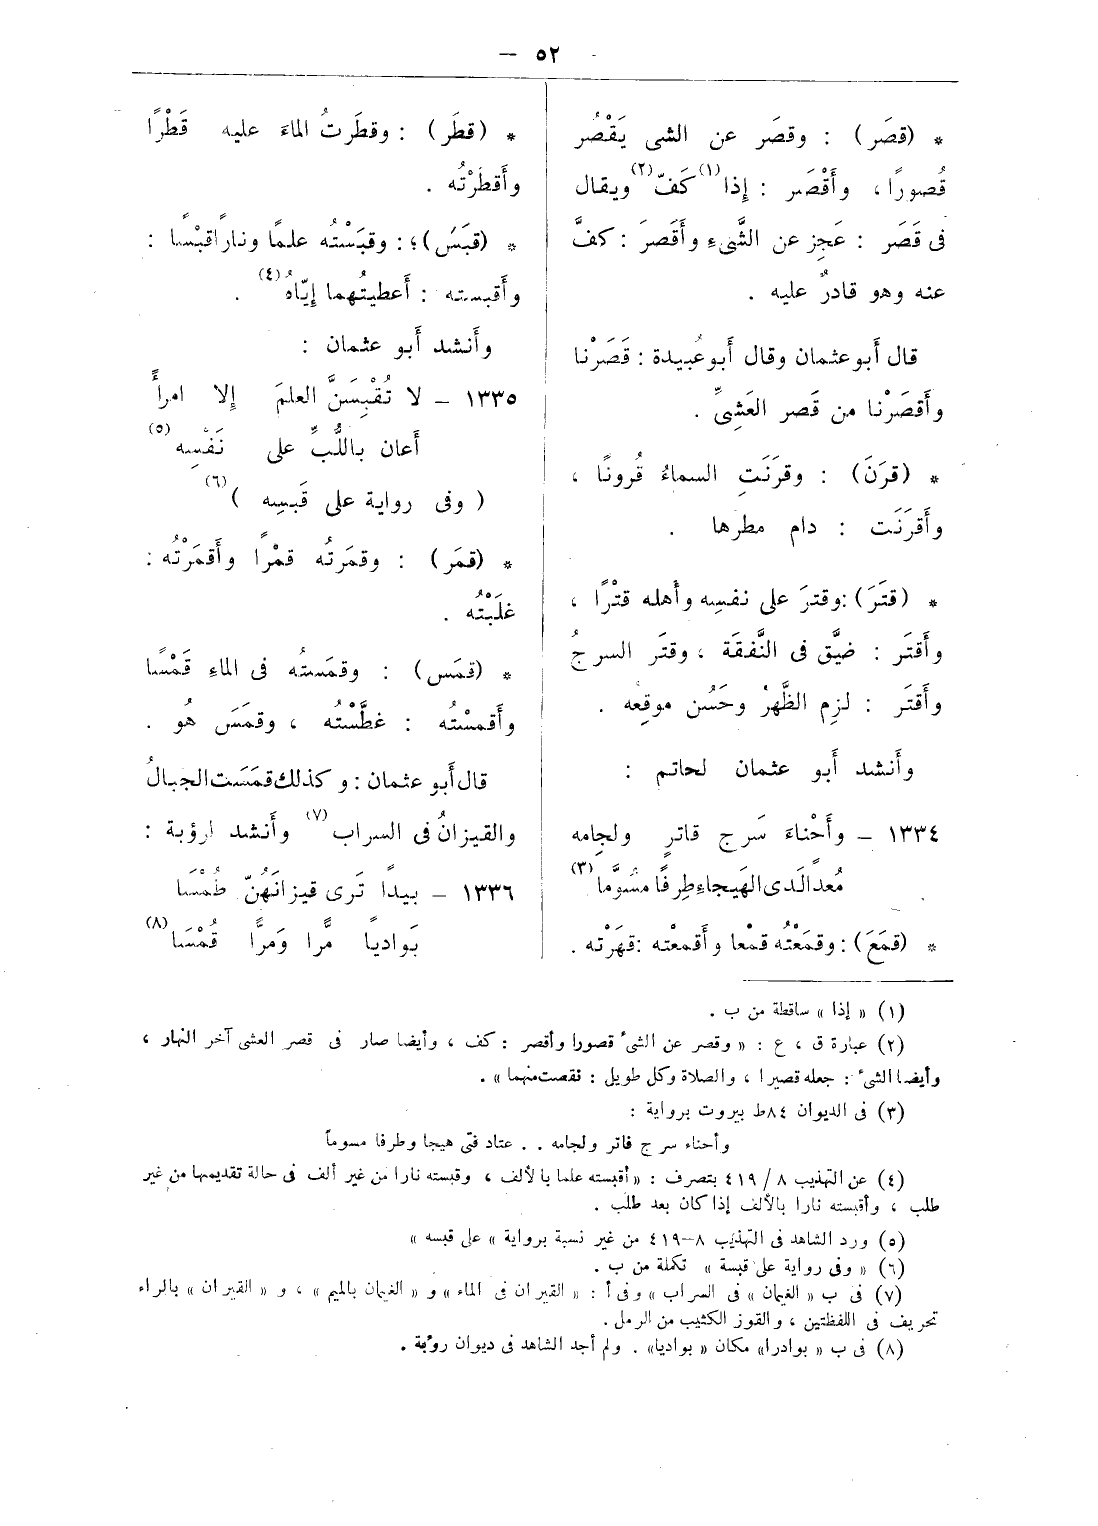 – ٥٢ –
* (قصَر) : وقصَر عن الشى يَقْصُر
قُصورًا، وأَقْصَر : إذا(١) كَفّ(٢) ويقال
فى قَصَر : عَجِز عن الشَّىء وأَقصَرَ : كفَّ
عنه وهو قادرٌ عليه .
قال أَبو عثمان وقال أَبو عُبيدة : قَصَرْنا
وأَقصَرْنا من قَصر العَشِىِّ .
* (قرَنَ) : وقرَنَتِ السماءُ قُرونًا ،
وأَقرَنَت : دام مطرها .
* (قتَرَ) : وقترَ على نفسِه وأهله قترًا ،
وأَقتَر : ضيَّق فى النَّفقَة ، وقتَر السرجُ
وأَقتَر : لزِم الظَّهرْ وحَسُن موقِعه .
وأَنشد أَبو عثمان لحاتم :
١٣٣٤ – وأَحْناءَ سَرج قاترٍ ولجامِه
مُعدًا لَدى الهَيجاءِ طِرفًا مسُوَّما(٣)
* (قمَعَ) : وقمَعْتُه قمْعا وأَقمعْته : قهَرْته .
* (قطَر) : وقطَرتُ الماءَ عليه قَطْرًا
وأَقطَرْتُه .
* (قبَسَ)؛ : وقبَسْتُه علمًا ونارًا قبْسًا :
وأَقبسته : أَعطيتُهما إيّاهُ(٤) .
وأَنشد أَبو عثمان :
١٣٣٥ – لا تُقْبِسَنَّ العلمَ إلا امرأً
أَعان باللُّبِّ على نَفْسِه(٥)
( وفى رواية على قَبسِه )(٦)
* (قمَر) : وقمَرتُه قمْرًا وأَقمَرْتُه :
غلَبْتُه .
* (قمَس) : وقمَستُه فى الماءِ قَمْسًا
وأَقمسْتُه : غطَّسْتُه ، وقمَسَ هُو .
قال أَبو عثمان : وكذلك قمَسَت الجبالُ
والقيزانُ فى السراب(٧) وأَنشد لرؤبة :
١٣٣٦ – بيدًا تَرى قيزانَهُنّ طُمْسَا
بَواديًا مَّرا وَمَرًّا قُمْسَا(٨)
(١) « إذا » ساقطة من ب .
(٢) عبارة ق ، ع : « وقصر عن الشىء قصورا وأقصر : كف ، وأيضا صار فى قصر العشى آخر النهار ،
وأيضا الشىء : جعله قصيرا ، والصلاة وكل طويل : نقصت منهما » .
(٣) فى الديوان ٨٤ ط بيروت برواية :
وأحناء سرج فاتر ولجامه . . عتاد فتى هيجا وطرفا مسوماً
(٤) عن التهذيب ٨ / ٤١٩ بتصرف : « أقبسته علما بالألف ، وقبسته نارا من غير ألف فى حالة تقديمها من غير
طلب ، وأقبسته نارا بالألف إذا كان بعد طلب .
(٥) ورد الشاهد فى التهذيب ٨–٤١٩ من غير نسبة برواية « على قبسه »
(٦) « وفى رواية على قبسة » تكملة من ب .
(٧) فى ب « الغيمان » فى السراب » وفى أ : « القيران فى الماء » و « الغيمان بالميم » ، و « القيران » بالراء
تحريف فى اللفظتين ، والقوز الكثيب من الرمل .
(٨) فى ب « بوادرا » مكان « بواديا» . ولم أجد الشاهد فى ديوان رؤبة .